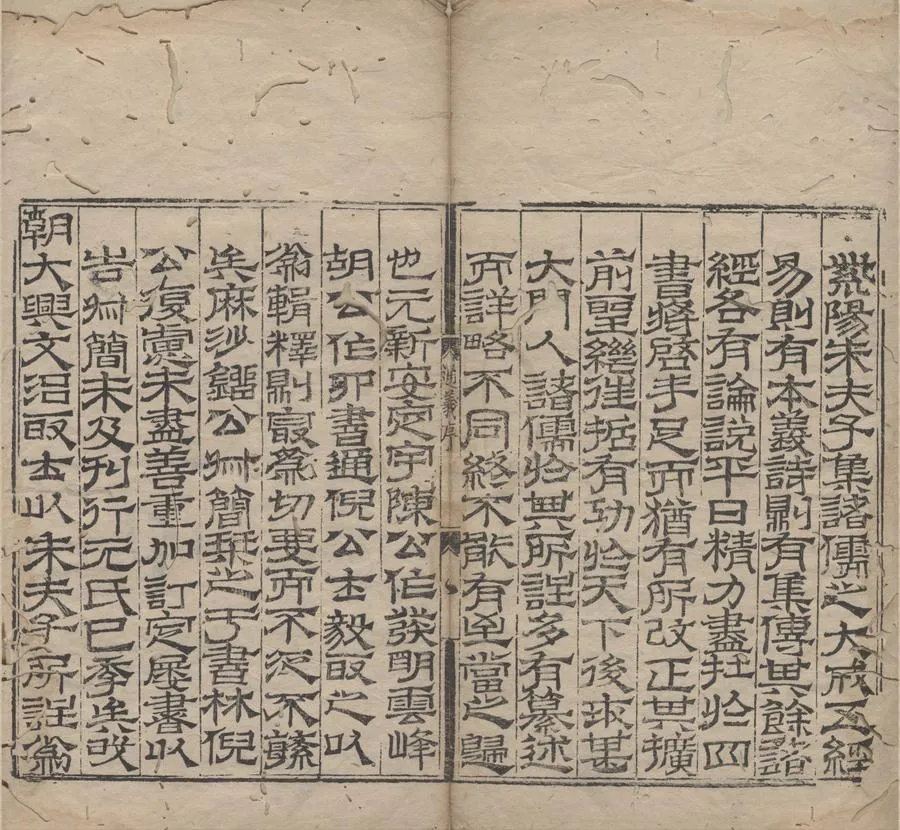 紫陽朱夫子集諸儒之大成五經
易則有本義詩則有集傳其餘諸
經各有論說平日精力盡在於四
書將啓手足而猶有所改正其擴
前聖繼往哲有功於天下後世甚
大門人諸儒於其所註多有纂述
而詳略不同終不能有至當之歸
通義序
也元新安定宇陳公作發明雲峰
胡公作四書通倪公士毅取之以
為輯釋則最為切要而不泛不
矣麻沙鎦公叔簡栞之于書林倪
公復慮未盡善重加訂定屢書以
告叔簡未及刊行元氏已季兵
朝大興文治取士以朱夫子所註為